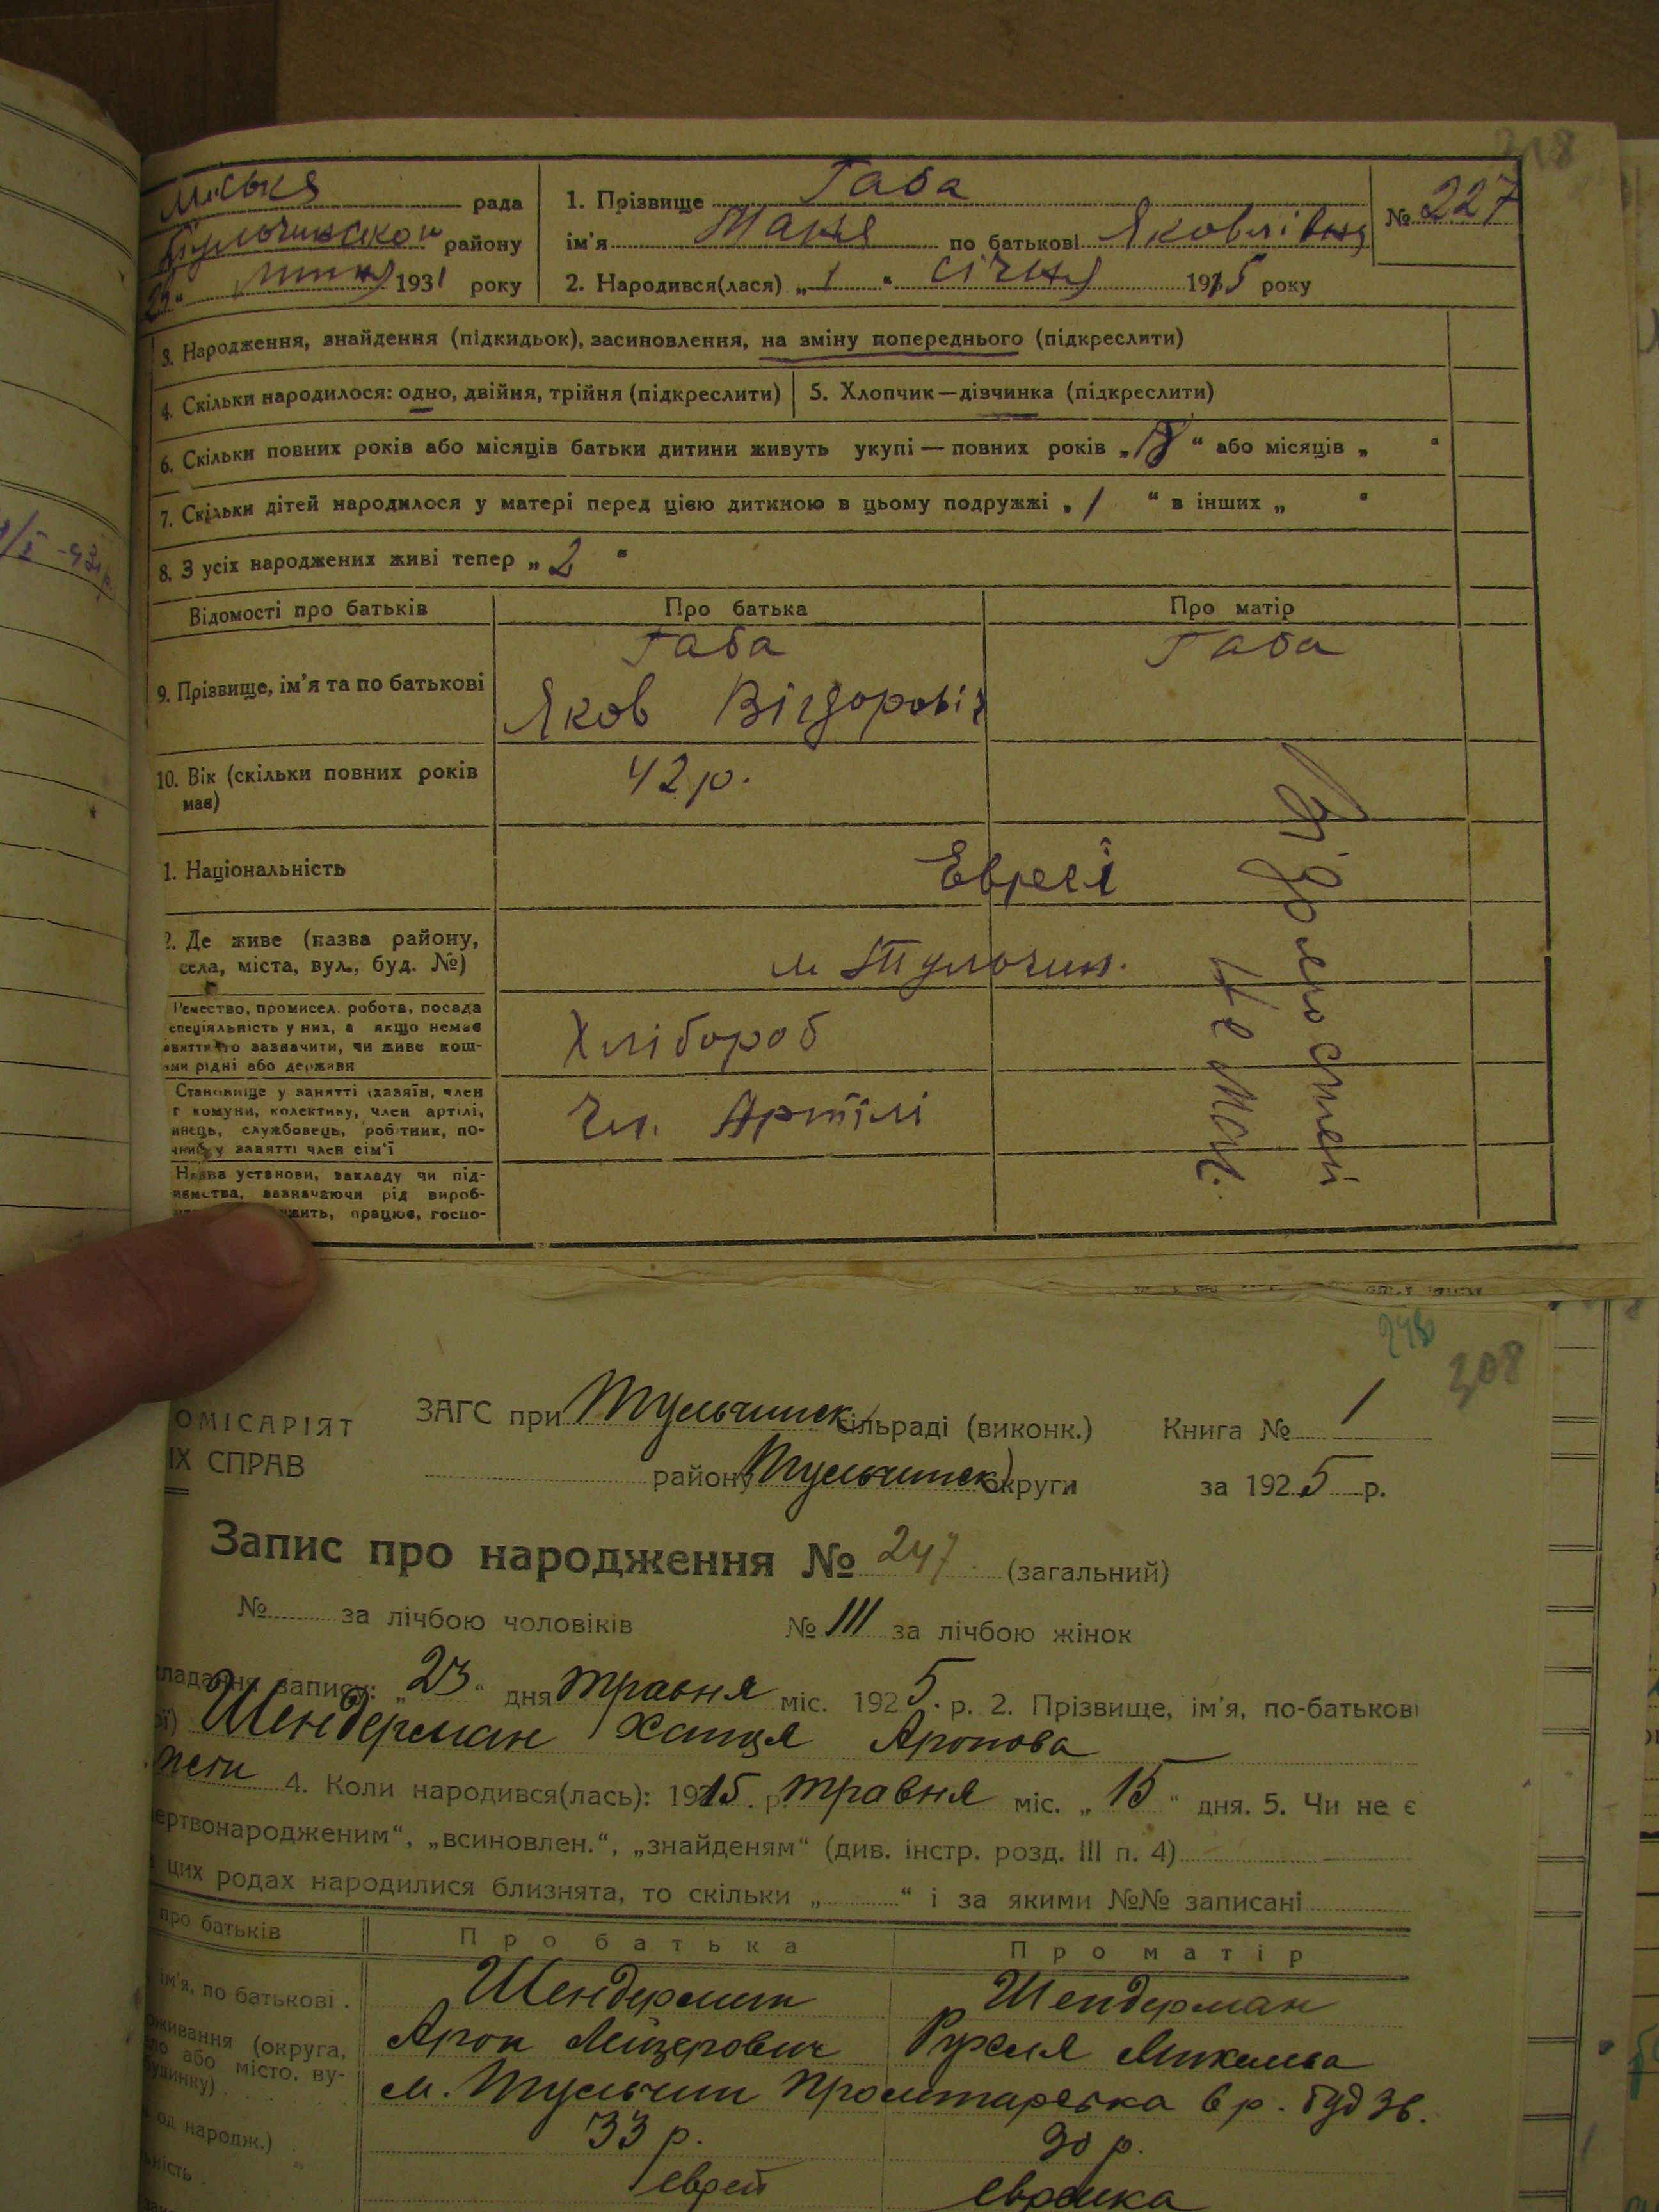 318
Міська рада
Тульчинской району
1931 року
1. Прізвище Габа
ім'я Маня по батькові Яковлівна
№ 227
2. Народився(лася) „1" січня 1915 року
3. Народження, знайдення (підкидьок), засиновлення, на зміну попереднього (підкреслити)
4. Скільки народилося: одно, двійня, трійня (підкреслити)
5. Хлопчик—дівчинка (підкреслити)
6. Скільки повних років або місяців батьки дитини живуть укупі—повних років „ " або місяців „ "
7. Скільки дітей народилося у матері перед цією дитиною в цьому подружжі „1 " в інших „ "
8. З усіх народжених живі тепер „2 "
Відомості про батьків
Про батька
Про матір
9. Прізвище, ім'я та по батькові
Габа
Яков Вігдоровіч
Габа
10. Вік (скільки повних років має)
42 р.
1. Національність
Євреї
2. Де живе (назва району,
села, міста, вул., буд. №)
м Тульчин.
Ремество, промисел. робота, посада
спеціяльність у них, а якщо немає
заняття то зазначити, чи живе кош-
ами рідні або держави
Хлібороб
Становище у занятті (хазяїн, член
комуни, колективу, член артілі,
службовець, робітник, по-
у занятті член сім'ї
Чл. Артілі
Назва установи, закладу чи під-
зазначаючи рід вироб-
працює, госпо-
Відомостей
не має.
248
308
ОМІСАРІЯТ
ІХ СПРАВ
ЗАГС при Тульчинск сільраді (виконк.)
Книга № 1
району Тульчинск округи
за 1925 р.
Запис про народження № 247 (загальний)
№ за лічбою чоловіків
№ 111 за лічбою жінок
кладання запису: „23" дня травня міс. 1925. р. 2. Прізвище, ім'я, по-батькові
Шендерман Ханця Аронова
4. Коли народився(лась): 1915. р. травня міс. „15" дня. 5. Чи не є
мертвонародженим", „всиновлен.", „знайденям" (див. інстр. розд. III п. 4)
цих родах народилися близнята, то скільки „ " і за якими №№ записані
про батьків
Про батька
Про матір
ім'я, по батькові.
Шендерман
Шендерман
Арон Лейзерович
Рухля
оживання (округа,
або місто, ву-
будинку)
м. Тульчин Пролитарська
од народж.)
33 р.
30 р.
ність.
еврей
еврейка